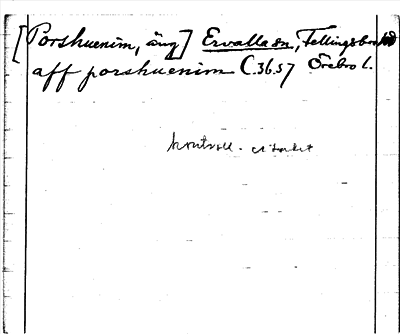 [Porshuenim, äng] Ervalla sn, Fellingsbro hd
aff porshuenim C.36.57 Örebro l.
kontroll.